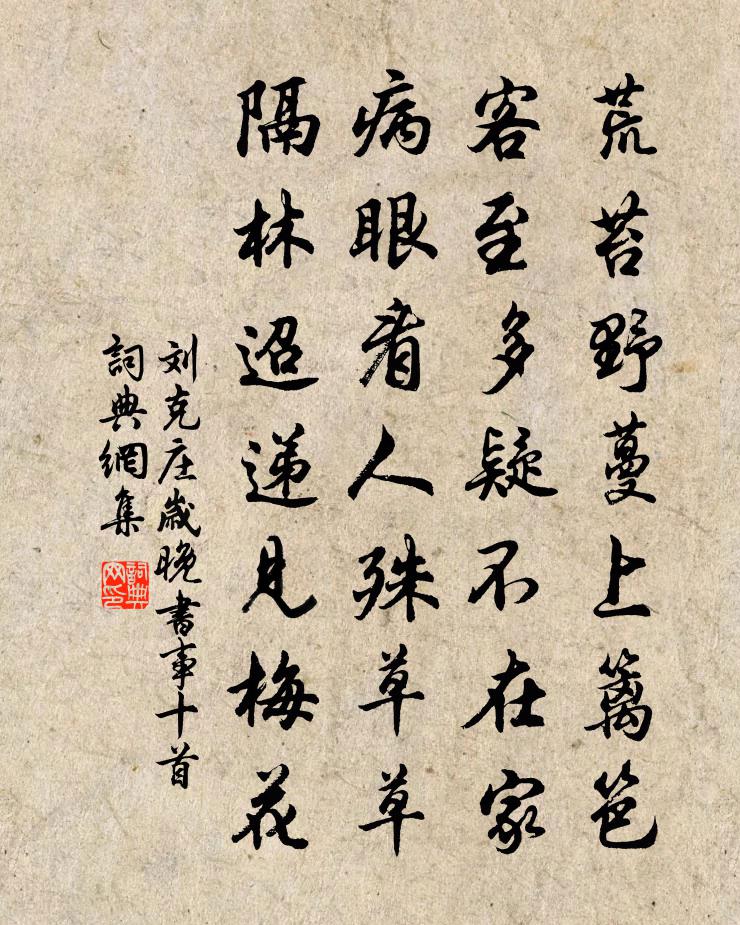 荒苔野蔓上籬笆
客至多疑不在家
病眼看人殊草草
隔林迢递見梅花
刘克庄歲晚書事十首
詞典網集
詞典
网印